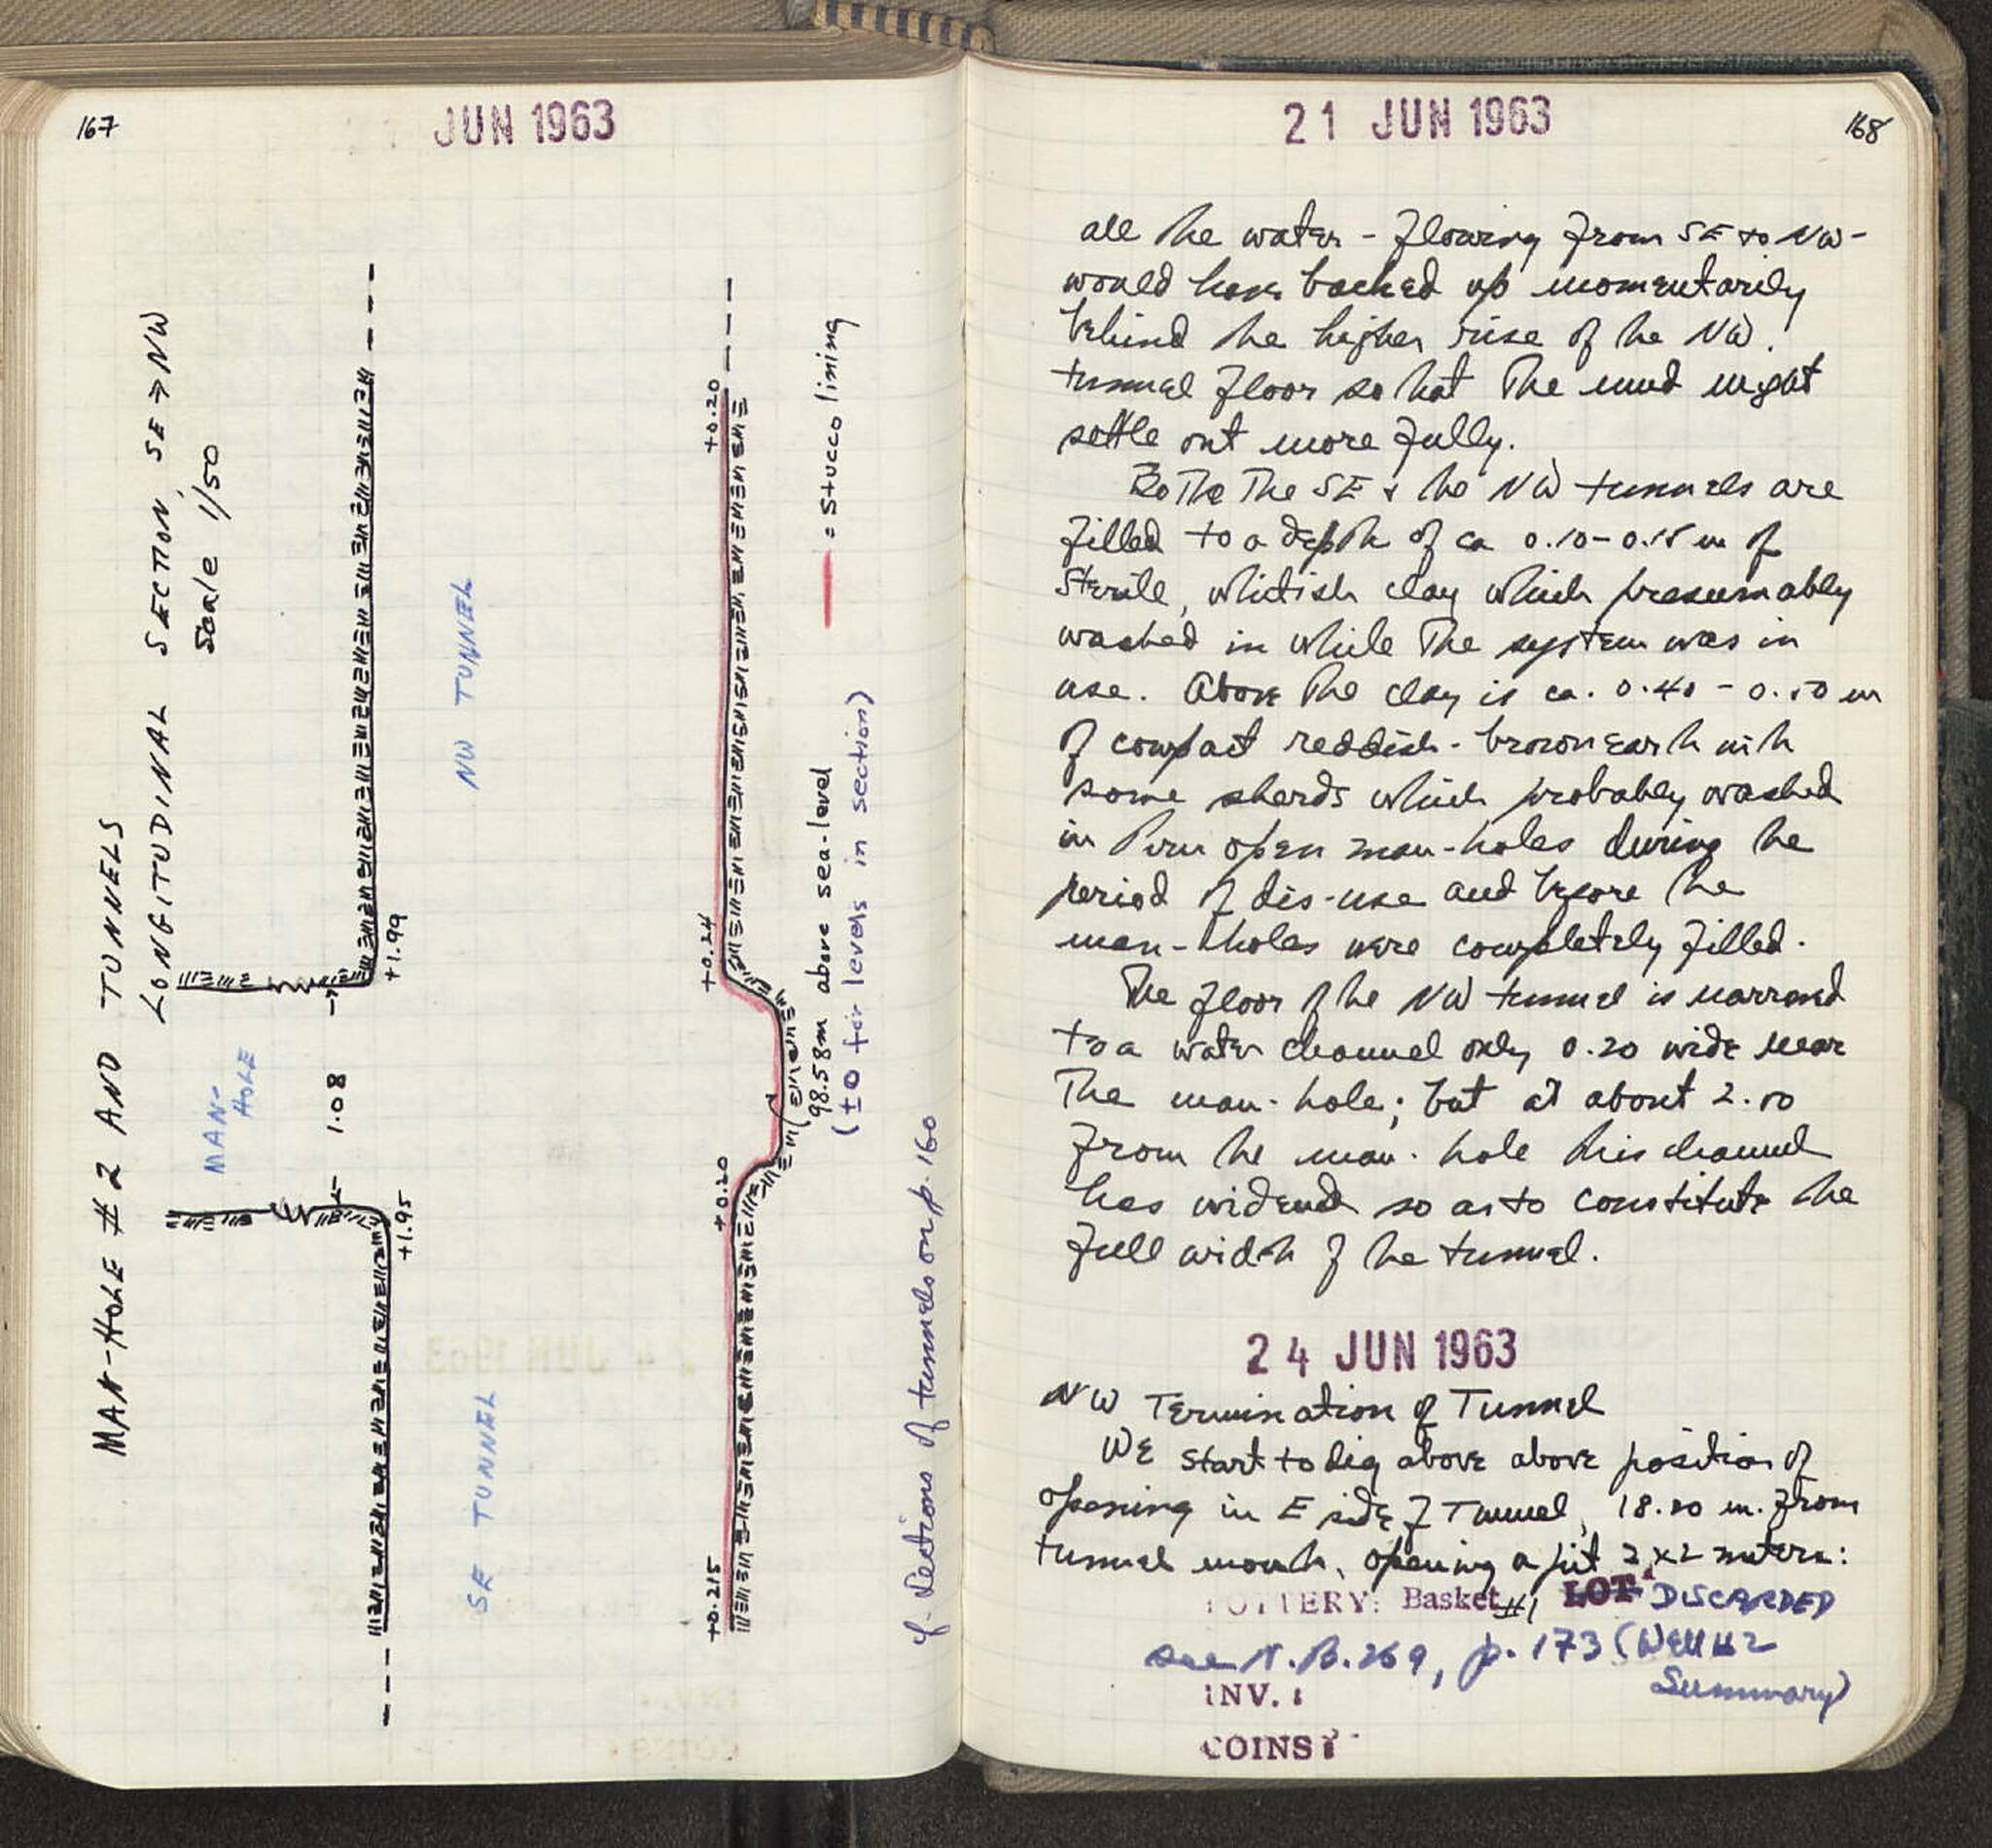 167
JUN 1963
MAN-HOLE # 2 AND TUNNELS
LONGITUDINAL SECTION, SE → NW
Scale 1/50
MAN-
HOLE
1.08
+1.95
+1.99
SE TUNNEL
NW TUNNEL
+0.215
+0.20
+0.24
+0.20
98.58m above sea-level
(±0 for levels in section)
= stucco lining
cf. Sections of tunnels on p. 160
21 JUN 1963
168
all the water - flowing from SE to NW -
would have backed up momentarily
behind the higher rise of the NW.
tunnel floor so that the mud might
settle out more fully.
Both the SE & the NW tunnels are
filled to a depth of ca 0.10-0.15 m of
sterile, whitish clay which presumably
washed in while the system was in
use. Above the clay is ca. 0.40 - 0.50 m
of compact reddish-brown earth with
some sherds which probably washed
in from open man-holes during the
period of dis-use and before the
man-holes were completely filled.
The floor of the NW tunnel is narrowed
to a water channel only 0.20 wide near
the man-hole; but at about 2.00
from the man-hole this channel
has widened so as to constitute the
full width of the tunnel.
24 JUN 1963
NW Termination of Tunnel
We start to dig above above position of
opening in E side of Tunnel, 18.20 m. from
tunnel mouth, opening a pit 2 x 2 meters:
POTTERY: Basket #1 LOT DISCARDED
see N.B. 269, p. 173 (Well #2
Summary)
INV. :
COINS :